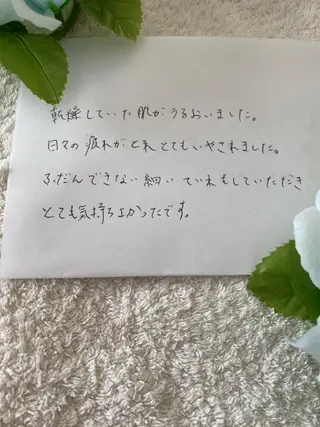 乾燥していた肌がうるおいました。
日々の疲れがとれとてもいやされました。
ふだんできない細いていれもしていただき
とても気持ちよかったです。